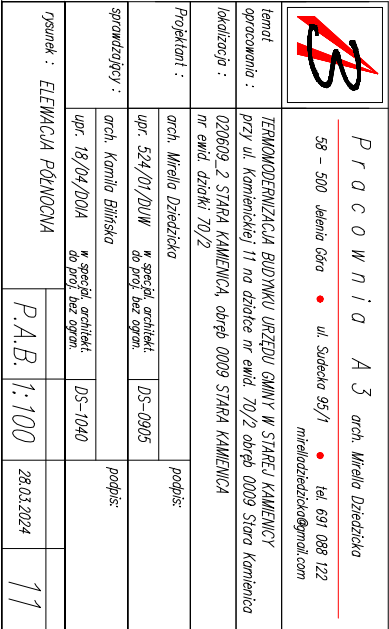 Pracownia A3 arch. Mirella Dziedzicka
58 - 500 Jelenia Góra • ul. Sudecka 95/1 • tel. 691 088 122
mirelladziedzicka@gmail.com
temat opracowania :
TERMOMODERNIZACJA BUDYNKU URZĘDU GMINY W STAREJ KAMIENICY
przy ul. Kamienickiej 11 na działce nr ewid. 70/2 obręb 0009 Stara Kamienica
lokalizacja :
020609_2 STARA KAMIENICA, obręb 0009 STARA KAMIENICA
nr ewid. działki 70/2
Projektant :
arch. Mirella Dziedzicka
podpis:
upr. 524/01/DUW
w specjal. architekt.
do proj. bez ogran.
DS-0905
sprawdzający :
arch. Kamila Bilińska
podpis:
upr. 18/04/DOIA
w specjal. architekt.
do proj. bez ogran.
DS-1040
rysunek :
ELEWACJA PÓŁNOCNA
P.A.B.
1:100
28.03.2024
11